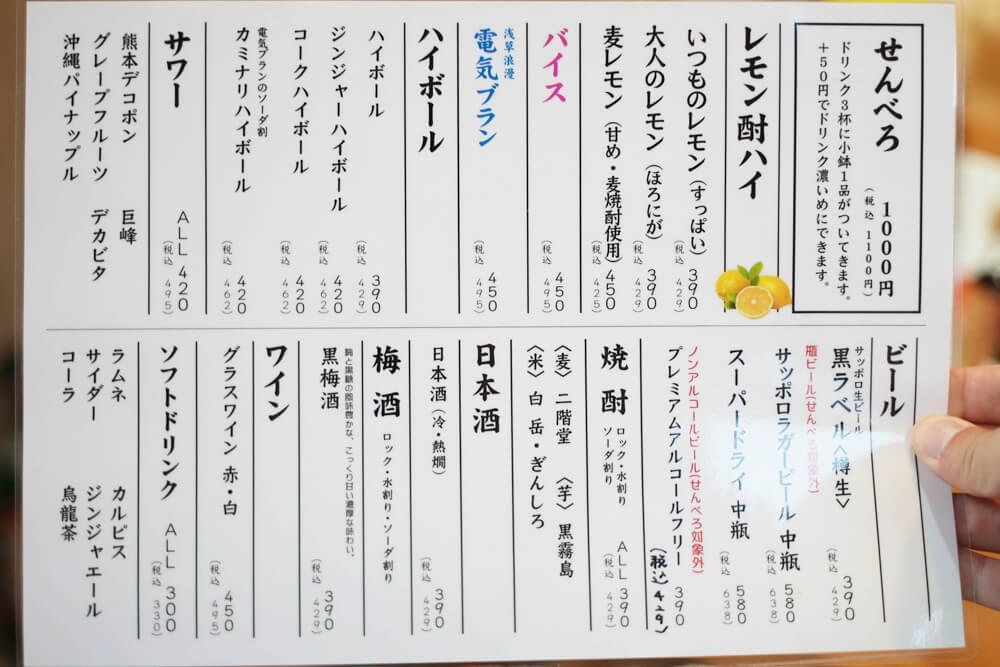 せんべろ
1000円
(税込 1100円)
ドリンク3杯に小鉢1品がついてきます。
+50円でドリンク濃いめにできます。
レモン酎ハイ
いつものレモン(すっぱい) 390
(税込 429)
大人のレモン(ほろにが) 390
(税込 429)
麦レモン(甘め・麦焼酎使用) 450
(税込 425)
バイス 450
(税込 495)
浅草浪漫
電気ブラン 450
(税込 495)
ハイボール
ハイボール 390
(税込 429)
ジンジャーハイボール 420
(税込 462)
コークハイボール 420
(税込 462)
電気ブランのソーダ割
カミナリハイボール 420
(税込 462)
サワー ALL 420
(税込 495)
熊本デコポン 巨峰
グレープフルーツ デカビタ
沖縄パイナップル
ビール
サッポロ生ビール
黒ラベル〈樽生〉 390
(税込 429)
瓶ビール(せんべろ対象外)
サッポロラガービール 中瓶 580
(税込 638)
スーパードライ 中瓶 580
(税込 638)
ノンアルコールビール(せんべろ対象外)
プレミアムアルコールフリー 390
(税込 429)
焼酎 ロック・水割り
ソーダ割り
ALL 390
(税込 429)
〈麦〉 二階堂 〈芋〉 黒霧島
〈米〉 白岳・ぎんしろ
日本酒
日本酒(冷・熱燗) 390
(税込 429)
梅酒 ロック・水割り・ソーダ割り
黒梅酒 390
(税込 429)
ワイン
グラスワイン 赤・白 450
(税込 495)
ソフトドリンク ALL 300
(税込 330)
ラムネ カルピス
サイダー ジンジャエール
コーラ 烏龍茶